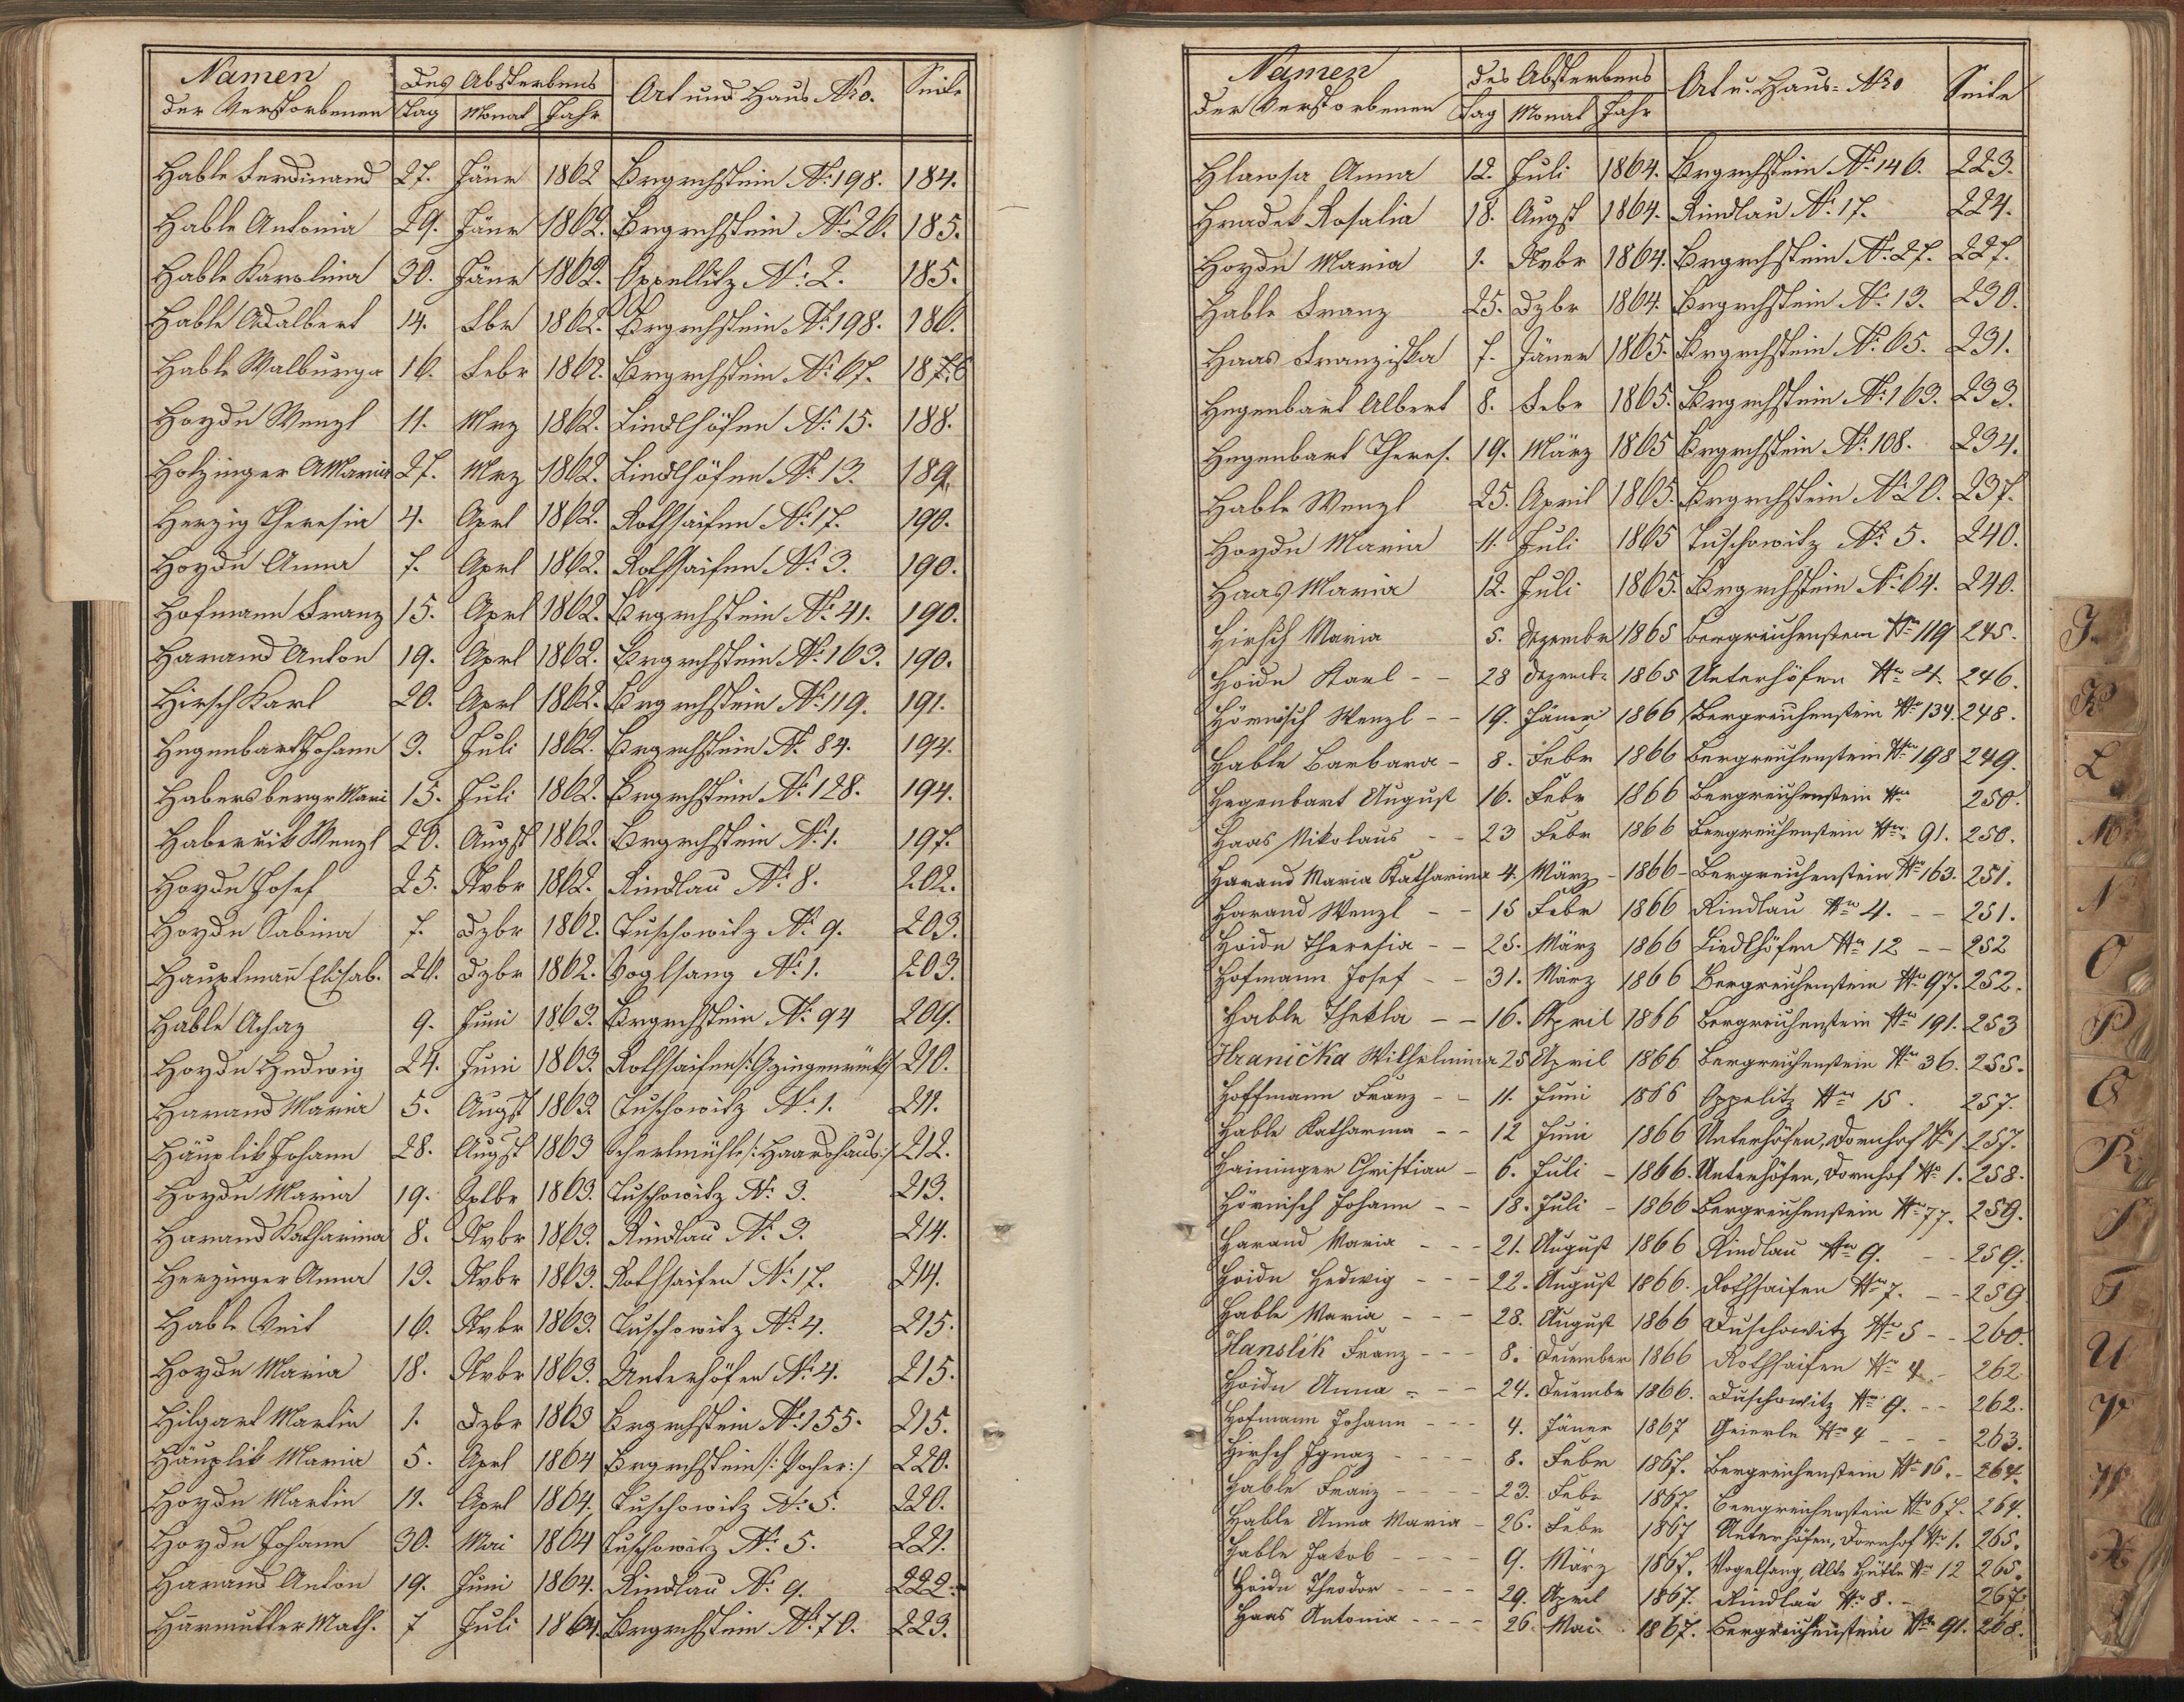 Namen der Verstorbenen | Des Absterbens | Ort und Haus Nro. | Seite
Tag | Monat | Jahr
Hable Ferdinand 27. Jänr 1862 Brgrchstein No. 198. 184.
Hable Antonia 29. Jänr 1862. Brgrchstein No. 26. 185.
Hable Karolina 30. Jänr 1862. Oppellitz No. 2. 185.
Hable Adalbert 14. Fbr 1862. Brgrchstein No. 198. 186.
Hable Walburga 16. Febr 1862. Brgrchstein No. 67. 186
Hoyde Wenzl 11. Mrz 1862. Liedlhöfen No. 15. 188.
Holzinger AMaria 27. Mrz 1862. Liedlhöfen No. 13. 189.
Herzig Theresia 4. Aprl 1862. Rothsaifen No. 17. 190.
Hoyde Anna 7. Aprl 1862. Rothsaifen No. 3. 190.
Hofmann Franz 15. Aprl 1862. Brgrchstein No. 41. 190.
Harand Anton 19. Aprl 1862. Brgrchstein No. 163. 190.
Hirsch Karl 20. Aprl 1862. Brgrchstein No. 119. 191.
Hegenbart Johann 3. Juli 1862. Brgrchstein No. 84. 194.
Habersbergr Mari 15. Juli 1862. Brgrchstein No. 128. 194.
Wenzl 20. Augst 1862. Brgrchstein No. 1. 197.
Hoyde Josef 25. Nvbr 1862. Rindlau No. 8. 202.
Hoyde Sabina 7. Dzbr 1862. Tuschowitz No. 9. 203.
Hauptmañ Elisab. 20. Dzbr 1862. Voglsang No. 1. 203.
Hable Achaz 9. Juni 1863. Brgrchstein No. 94 209.
Hoyde Hedwig 24. Juni 1863. Rothsaifen 210.
Harand Maria 5. Augst 1863 Tuschowitz No. 1. 211.
Häuplik Johann 28. Augst 1863 212.
Hoyde Maria 19. Sptbr 1863. Tuschowitz No. 3. 213.
Harand Katharina 8. Nvbr 1863. Rindlau No. 3. 214.
Herzinger Anna 13. Nvbr 1863. Rothsaifen No. 17. 214.
Hable Veit 16. Nvbr 1863. Tuschowitz No. 4. 215.
Hoyde Maria 18. Nvbr 1863. Unterhöfen No. 4. 215.
Hilgart Martin 1. Dzbr 1863 Brgrchstein No. 155. 215.
Häuplik Maria 5. Aprl 1864 Brgrchstein /:Pocher:/ 220.
Hoyde Martin 11. Aprl 1864. Tuschowitz No. 5. 220.
Hoyde Johann 30. Mai 1864 Tuschowitz No. 5. 221.
Harand Anton 19. Juni 1864. Rindlau No. 9. 222.
Math. 7 Juli 1864. Brgrchstein No. 70. 223.
Namen der Verstorbenen | des Absterbens | Ort u. Haus-Nro | Seite
Tag | Monat | Jahr
Hlawsa Anna 12. Juli 1864. Brgrchstein No. 146. 223.
Hradek Rosalia 18. Augst 1864. Rindlau No. 17. 224.
Hoyde Maria 1. Nvbr 1864. Brgrchstein No. 27. 227.
Hable Franz 25. Dzbr 1864. Brgrchstein No. 13. 230.
Haas Franziska 7. Jäner 1865. Brgrchstein No. 65. 231.
Hegenbart Albert 8. Febr 1865. Brgrchstein No. 163. 233.
Hegenbart Theres. 19. März 1865 Brgrchstein No. 108. 234.
Hable Wenzl 25. April 1865. Brgrchstein No. 20. 237.
Hoyde Maria 11. Juli 1865 Tuschowitz No. 5. 240.
Haas Maria 12. Juli 1865. Brgrchstein No. 64. 240.
Hirsch Maria 5. Dezember 1865 Bergreichenstein No 119 245.
Hoide Karl 28 Dezembr 1865 Unterhöfen No 4. 246.
Hörnisch Wenzl 19. Jäner 1866 Bergreichenstein No 134. 248.
Hable Barbara 8. Febr 1866 Bergreichenstein No 198 249.
Hegenbart August 16. Febr 1866 Bergreichenstein No 250.
Haas Nikolaus 23 Febr 1866 Bergreichenstein No 91. 250.
Harand Maria Katharina 4. März 1866 Bergreichenstein No 163. 251.
Harand Wenzl 15 Febr 1866 Rindlau No 4. 251.
Hoide Theresia 25. März 1866 Liedlhöfen No 12 252
Hofmann Josef 31. März 1866 Bergreichenstein No 97. 252.
Hable Thekla 16. April 1866 Bergreichenstein No 191. 253
Hranička Wilhelmina 25 April 1866 Bergreichenstein No 36. 255.
Hoffmann Franz 11. Juni 1866 Oppelitz No 15. 257.
Hable Katharina 12 Juni 1866 Unterhöfen, Dornhof No 1. 257.
Haininger Christian 6. Juli 1866. Unterhöfen, Dornhof No 1. 258.
Hörnisch Johann 18. Juli 1866 Bergreichenstein No 77. 259.
Harand Maria 21. August 1866 Rindlau No 9. 259.
Hoide Hedwig 22. August 1866. Rothsaifen No 7. 259
Hable Maria 28. August 1866 Duschowitz No 5 260.
Hanslik Franz 8. Dezember 1866 Rothsaifen No 4 262
Hoide Anna 24. Dezembr 1866. Duschowitz No 9. 262.
Hofmann Johann 4. Jäner 1867 Geierle No 4 263.
Hirsch Ignaz 8. Febr 1867. Bergreichenstein No 16. 264.
Hable Franz 23. Febr 1867. Bergreichenstein No 67. 264.
Hable Anna Maria 26. Febr 1867 Unterhöfen, Dornhof No 1. 265.
Hable Jakob 9. März 1867. Vogelsang, Alte Hütte No 12 265.
Hoide Theodor 29. April 1867. Rindlau No 8. 267.
Haas Antonia 26. Mai 1867. Bergreichenstein No 91. 268.
J.
K
L
M
N
O
P
Q
R
S
T
U
V
W